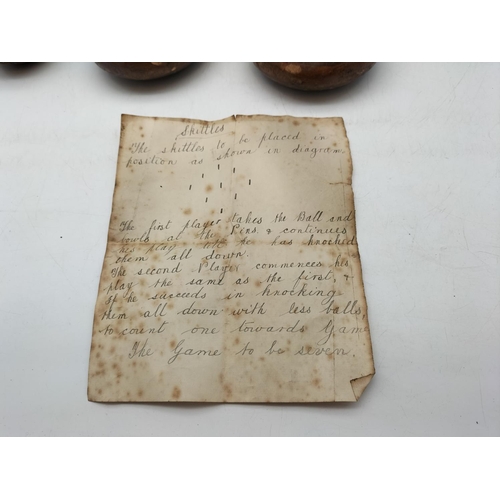 Skittles
The skittles to be placed in
position as shown in diagram
The first player takes the Ball and
bowls at the Pins, & continues
his play till he has knocked
them all down.
The second Player commences his
play the same as the first, &
if he succeeds in knocking
them all down with less balls,
to count one towards Game
The Game to be seven.